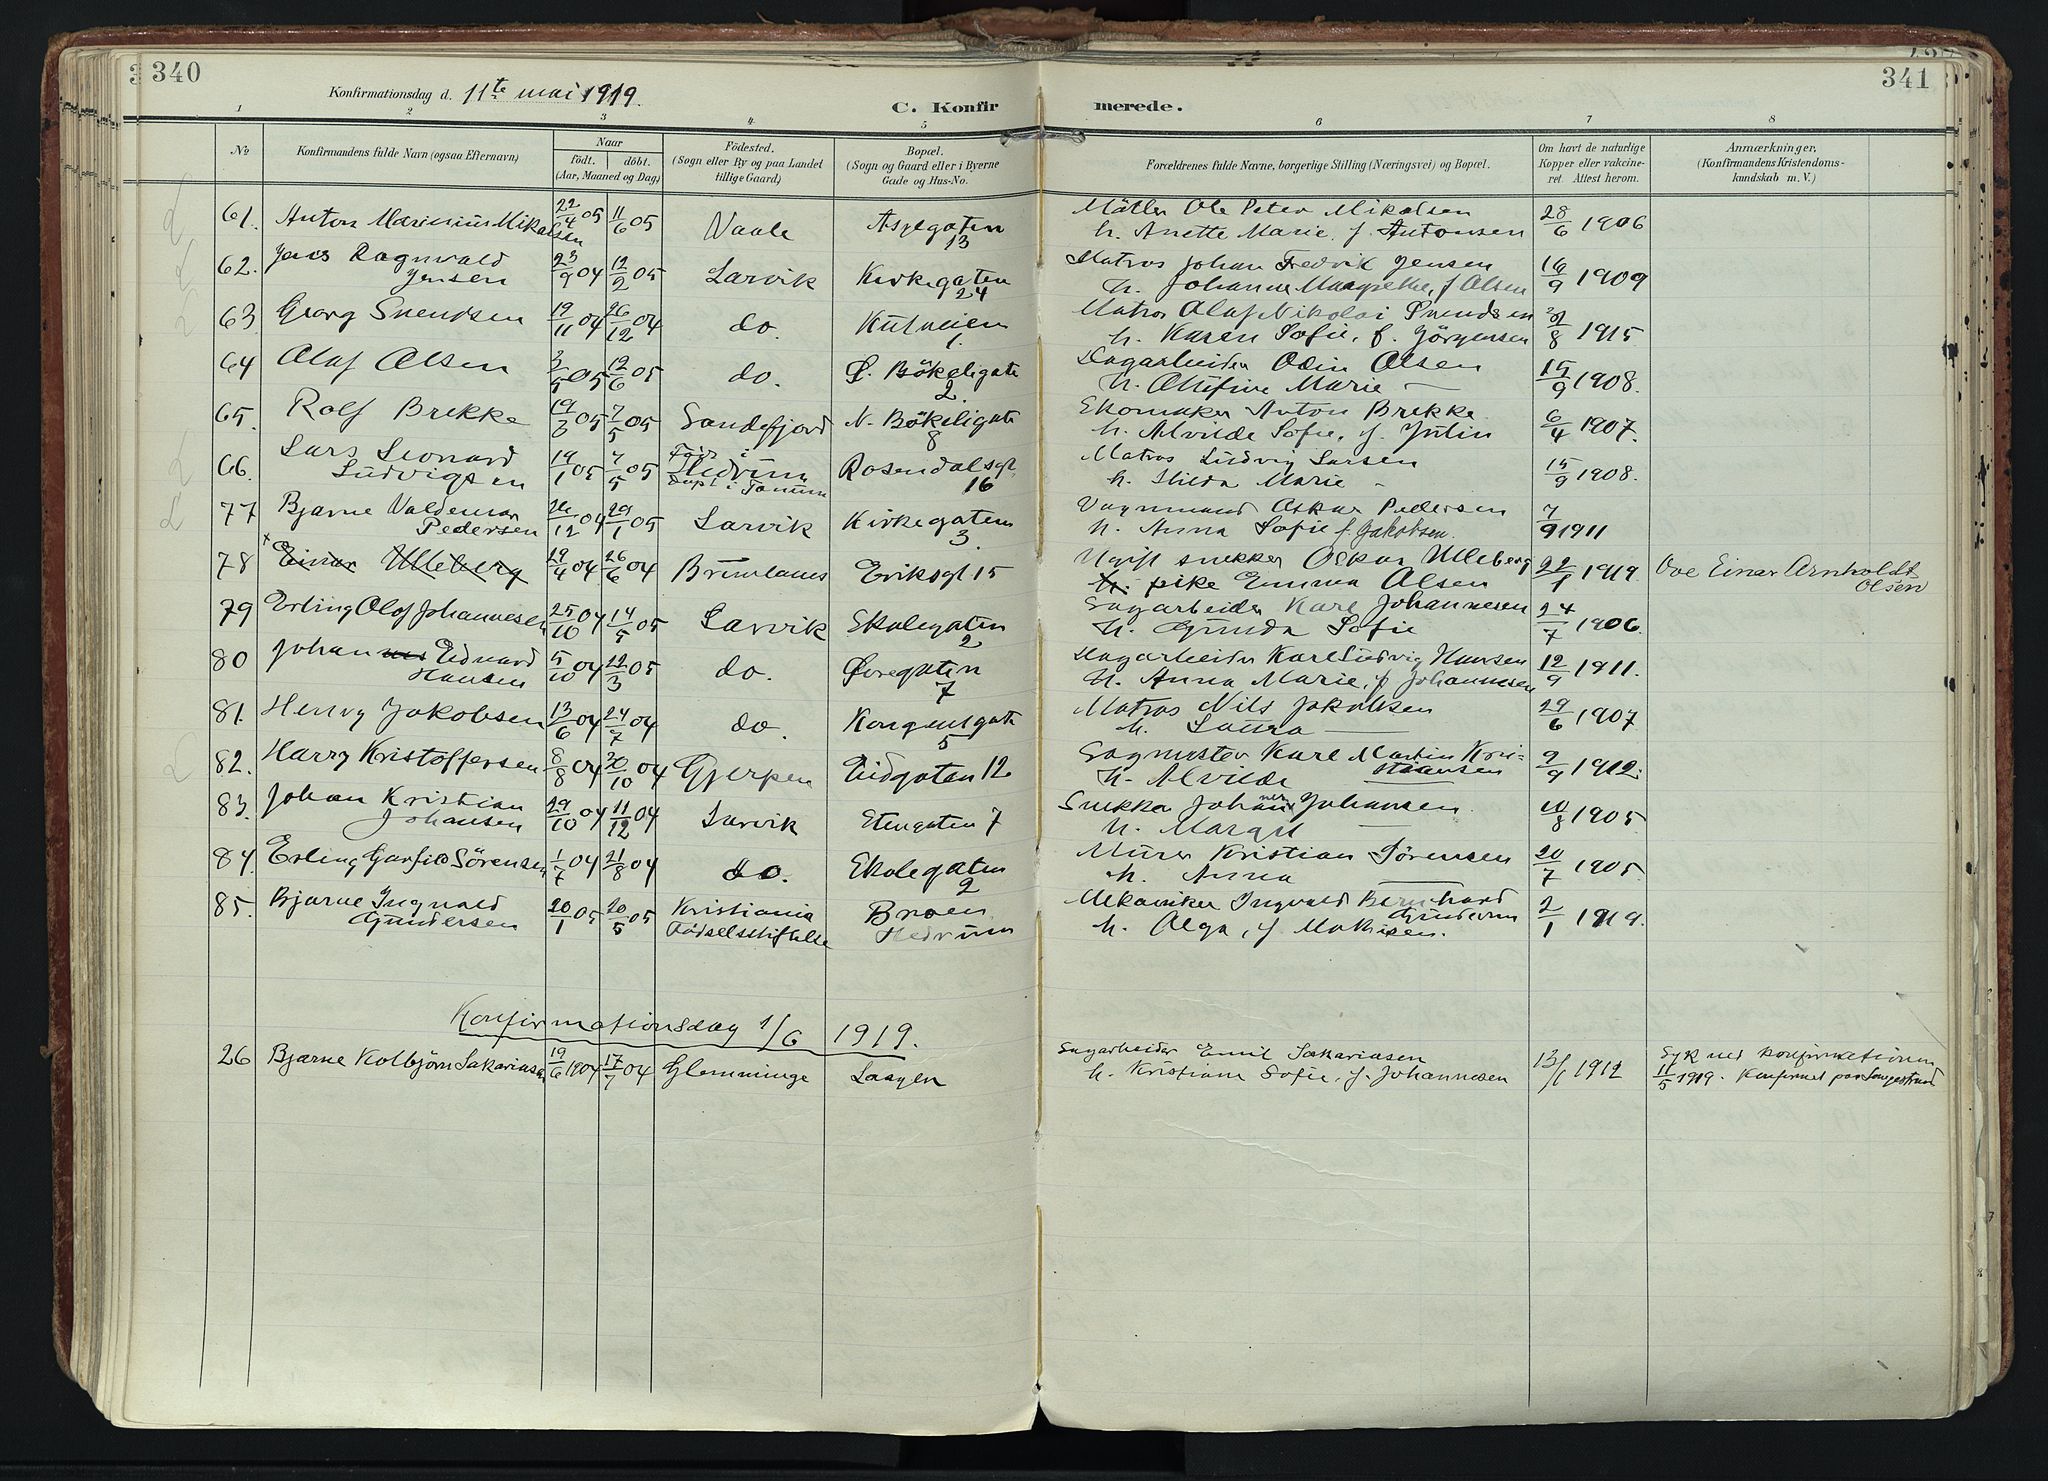 340
Konfirmationsdag d. 11te mai 1919.
C. Konfir
1 2 3 4 5
No
Konfirmandens fulde Navn (ogsaa Efternavn)
Naar
födt. döbt.
(Aar, Maaned og Dag)
Födested.
(Sogn eller By og paa Landet
tillige Gaard)
Bopæl.
(Sogn og Gaard eller i Byerne
Gade og Hus-No.
61. Anton Marinius Mikalsen 22/4 05 11/6 05 Vaale Asylgaten 13
62. Jens Ragnvald Jensen 23/9 04 12/2 05 Larvik Kirkegaten 24
63 Georg Svendsen 19/11 04 26/12 04 do. 1.
64 Olaf Olsen 3/5 05 12/6 05 do. Ø. Bökeligate 2.
65. Rolf Brekke 19/3 05 7/5 05 Sandefjord N. Bökeligate 8
66. Lars Leonard Ludvigsen 19/1 05 7/5 05 Föds i Hedrum Döpt i Tanum Rosendalsgt. 16
77 Bjarne Valdemar Pedersen 26/12 04 29/1 05 Larvik Kirkegaten 3.
78 Einar Ulleberg 29/4 04 26/6 04 Brunlanes Eriksgt 15
79 Erling Olof Johannesen 25/10 04 14/5 05 Larvik Skolegaten 2
80 Johannes Edvard Hansen 5/10 04 12/3 05 do. Øvregaten 7
81. Henry Jakobsen 13/6 04 24/7 04 do. Kongensgate 5
82. Harry Kristoffersen 8/8 04 30/10 04 Gjerpen Eidgaten 12
83. Johan Kristian Johansen 29/10 04 11/12 04 Larvik Stengaten 7
84. Erling Garfild Sörensen 1/7 04 21/8 04 do. Skolegaten 2
85. Bjarne Ingvald Gundersen 20/1 05 20/5 05 Kristiania Födselsstiftelse Broen Hedrum
Konfirmationsdag 1/6 1919.
26 Bjarne Kolbjörn Sakariasen 19/6 1904 17/7 04 Glemminge Laagen
341
merede.
6 7 8
Forældrenes fulde Navne, borgerlige Stilling (Næringsvei) og Bopæl.
Om havt de naturlige
Kopper eller vakcine-
ret. Attest herom.
Anmærkninger.
(Konfirmandens Kristendoms-
kundskab m. V.)
Ole Peter Mikalsen
h. Anette Marie, f. Antonsen 28/6 1906
Matros Johan Fredrik Jensen
h. Johanne Margrethe, f Olsen 16/9 1909
Matros Olaf Nikolai Svendsen
h. Karen Sofie, f. Jörgensen 1915
Sagarbeider Odin Olsen
h. Marie — 15/9 1908.
Skomaker Anton Brekke
h. Alvilde Sofie, f. Julin 6/4 1907.
Matros Ludvig Larsen
h. Hilda Marie - 15/9 1908.
Vognmand Oskar Pedersen
h. Anna Sofie f. Jakobsen. 7/9 1911
Ugift snekker Oskar Ulleberg
h. pike Emma Olsen 22/1 1919. Ove Einar Arnholdt
Olsen
Sagarbeider Karl Johannesen
h. Gunda Sofie 24/7 1906.
Sagarbeider Karl Ludvig Hansen
h. Anna Marie, f Johannesen 12/9 1911.
Matros Nils Jakobsen
h. Laura — 29/6 1907
Sagmester Karl Martin Kri-
stiansen
h. Alvilde — 9/9 1912.
Snekker Johannes Johansen.
h. Margit — 10/8 1905.
Murer Kristian Sörensen
h. Anna — 20/7 1905.
Mekaniker Ingvald Bernhard
Gundersen
h. Olga, f Mathisen. 2/1 1919.
Sagarbeider Emil Sakariasen
h. Kristiane Sofie, f. Johannesen 13/1 1912 Syk ved konfirmationen
11/5 1919. Konfirmert paa Langestrand